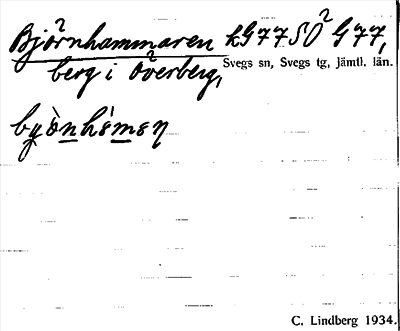 Björnhammaren kG77SÖ G77,
berg i Överberg,
Svegs sn, Svegs tg, Jämtl. län.
C. Lindberg 1934.